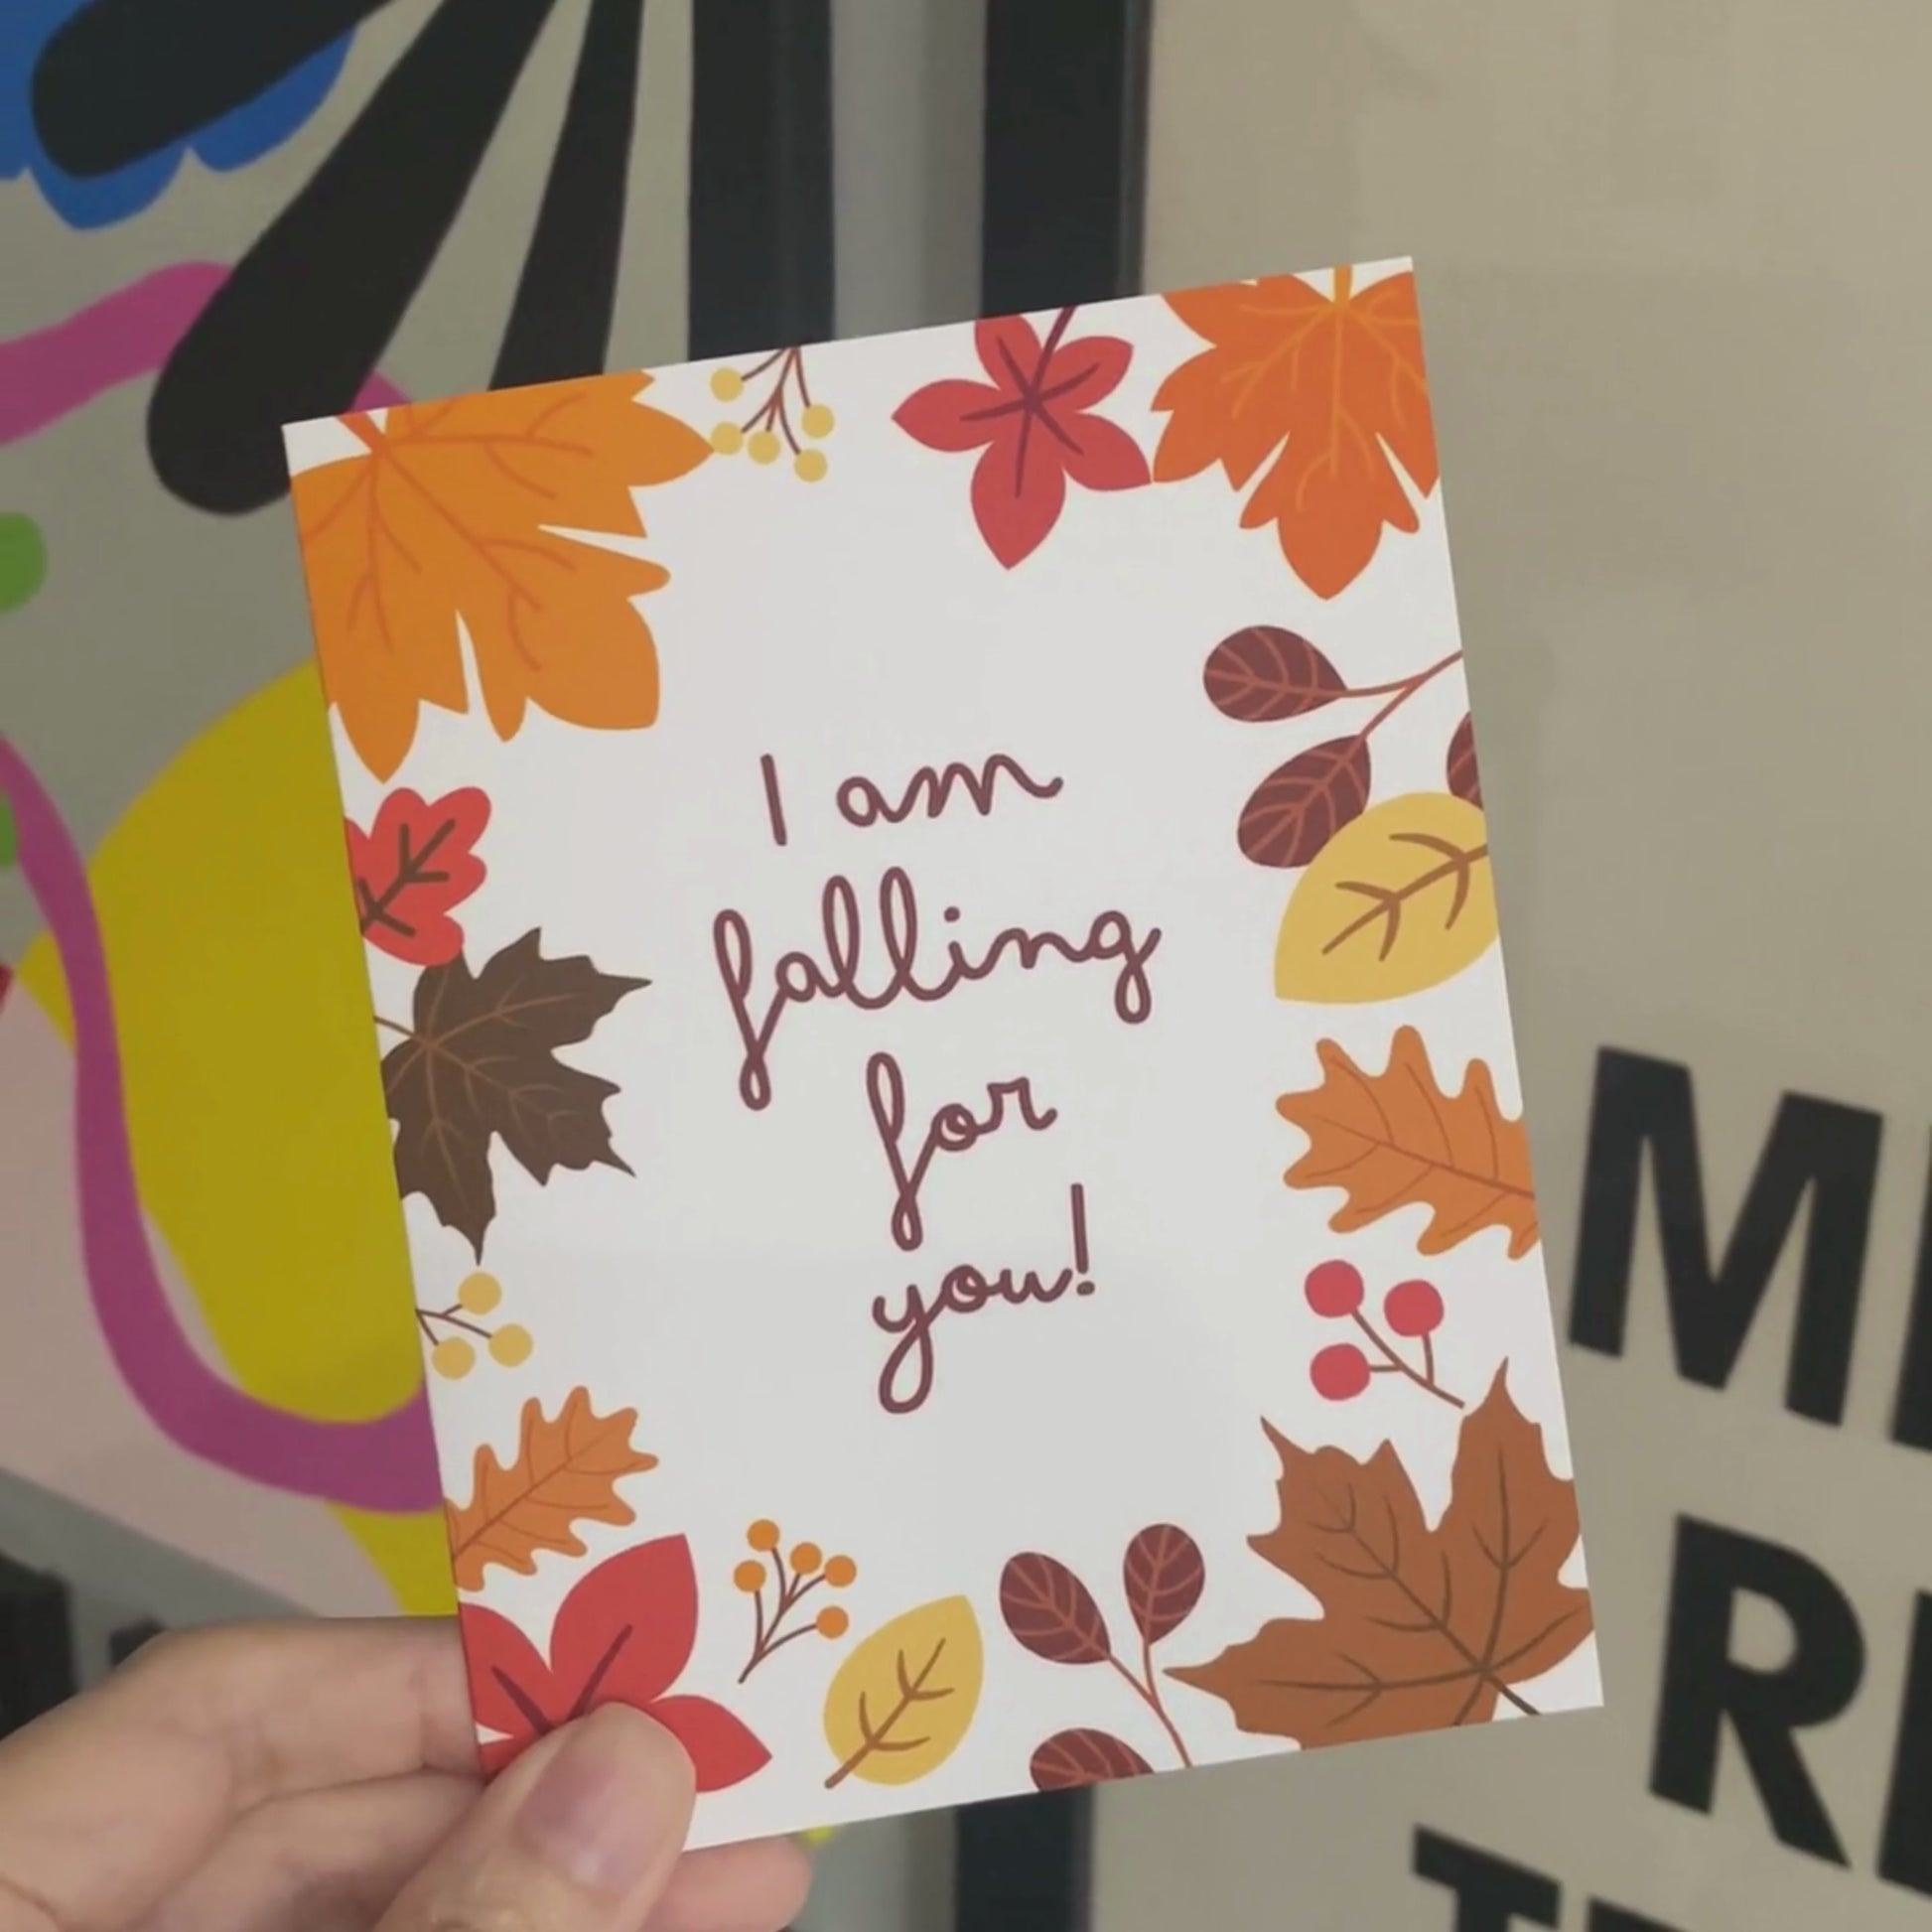 I am
falling
for
you!